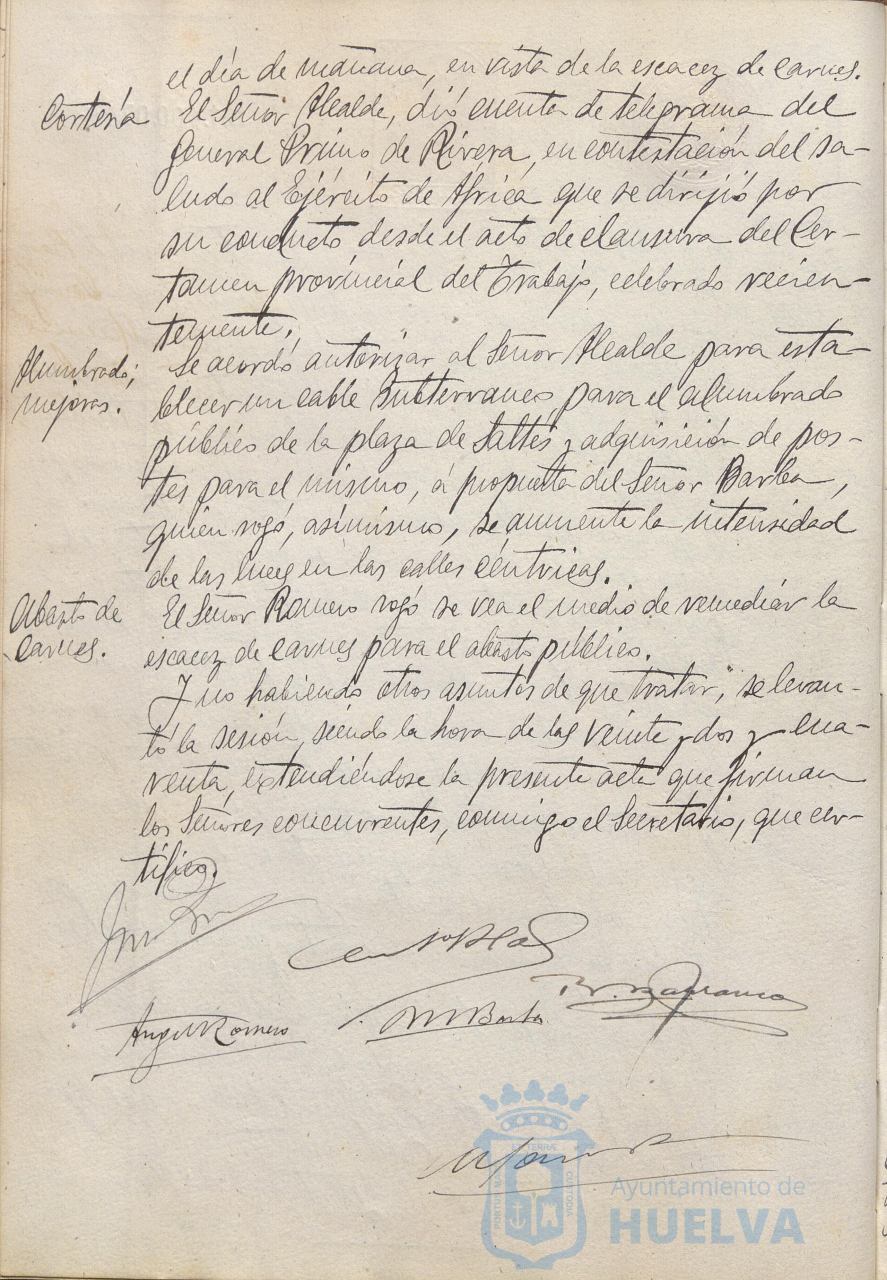 el día de mañana, en vista de la escacez de carnes.
Cortesía
El Señor Alcalde, dió cuenta de telegrama del
General Primo de Rivera, en contestación del sa-
ludo al Ejército de Africa que se dirijió por
su conducto desde el acto de clausura del Cer-
tamen provincial del Trabajo, celebrado recien-
temente.
Alumbrado;
mejoras.
Se acordó autorizar al Señor Alcalde para esta-
blecer un cable subterraneo para el alumbrado
público de la plaza de Saltés y adquisición de pos-
tes para el mismo, á propuesta del Señor Barba,
quien rogó, asímismo, se aumente la intensidad
de las luces en las calles céntricas.
Abasto de
carnes.
El Señor Romero rogó se vea el medio de remediar la
escacez de carnes para el abasto público.
Y no habiendo otros asuntos de que tratar, se levan-
tó la sesión, siendo la hora de las veinte y dos y cua-
renta, extendiéndose la presente acta que firman
los Señores concurrentes, conmigo el Secretario, que cer-
tifico.
Angel Romero
M Barba
PORTUS MARIS
ET TERRAE
CUSTODIA
Ayuntamiento de
HUELVA